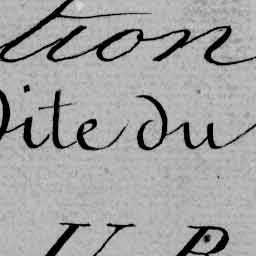 tion
Dite du
V. B